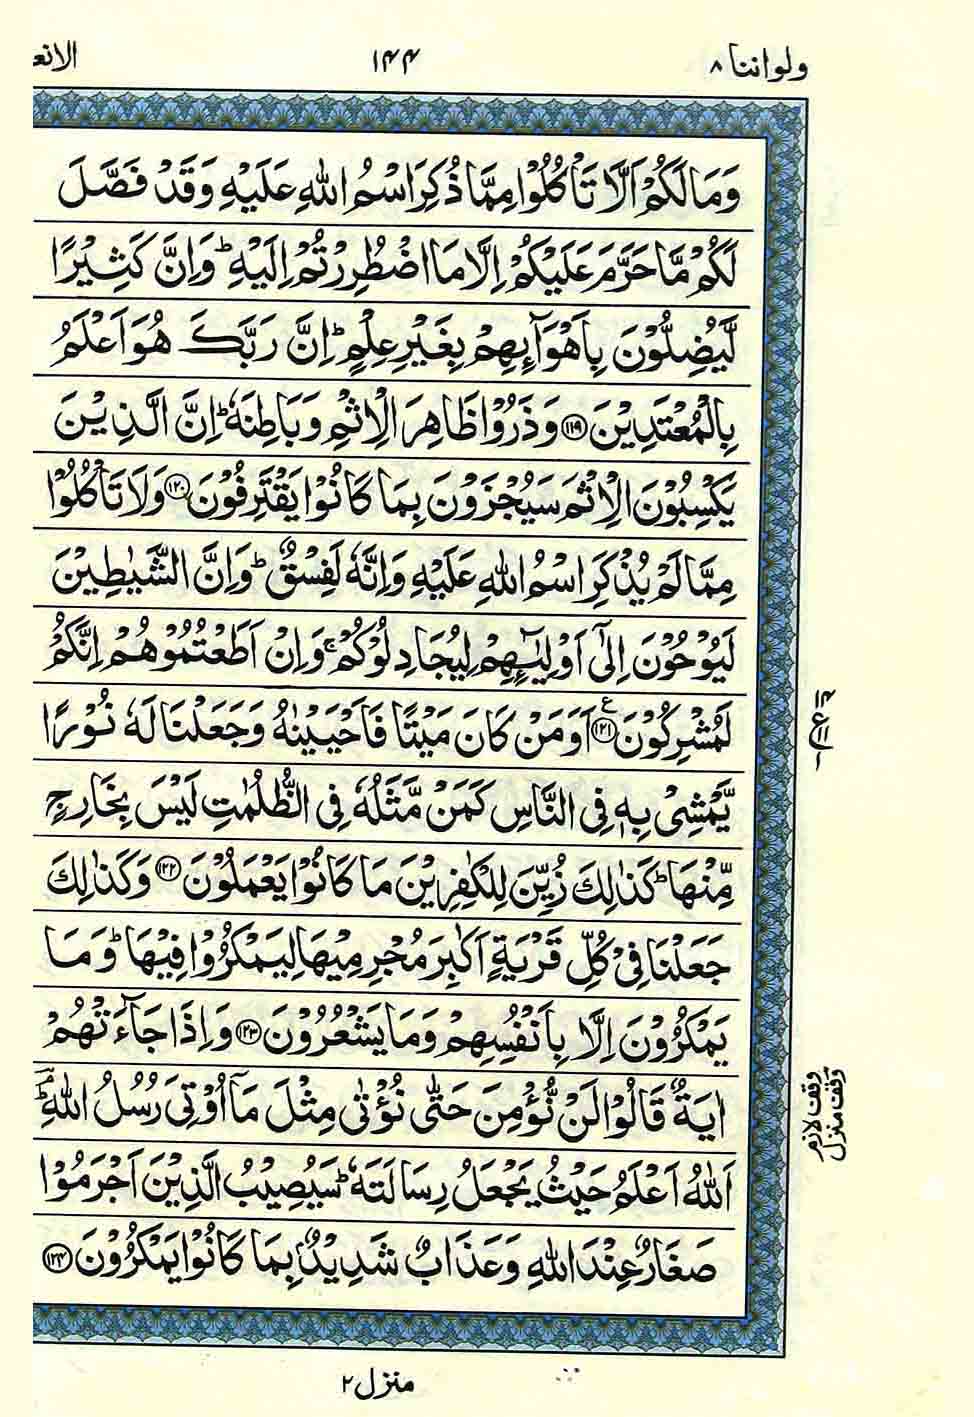 ولو اننا ۸ ۱۴۴ الانع
وَمَا لَكُمْ اَلَّا تَاْكُلُوْا مِمَّا ذُكِرَ اسْمُ اللّٰهِ عَلَيْهِ وَقَدْ فَصَّلَ
لَكُمْ مَّا حَرَّمَ عَلَيْكُمْ اِلَّا مَا اضْطُرِرْتُمْ اِلَيْهِ ؕ وَاِنَّ كَثِيْرًا
لَّيُضِلُّوْنَ بِاَهْوَآئِهِمْ بِغَيْرِ عِلْمٍ ؕ اِنَّ رَبَّكَ هُوَ اَعْلَمُ
بِالْمُعْتَدِيْنَ ۝۱۱۹ وَذَرُوْا ظَاهِرَ الْاِثْمِ وَبَاطِنَهٗ ؕ اِنَّ الَّذِيْنَ
يَكْسِبُوْنَ الْاِثْمَ سَيُجْزَوْنَ بِمَا كَانُوْا يَقْتَرِفُوْنَ ۝۱۲۰ وَلَا تَاْكُلُوْا
مِمَّا لَمْ يُذْكَرِ اسْمُ اللّٰهِ عَلَيْهِ وَاِنَّهٗ لَفِسْقٌ ؕ وَاِنَّ الشَّيٰطِيْنَ
لَيُوْحُوْنَ اِلٰٓى اَوْلِيٰٓـِٕهِمْ لِيُجَادِلُوْكُمْ ۚ وَاِنْ اَطَعْتُمُوْهُمْ اِنَّكُمْ
لَمُشْرِكُوْنَ ۝۱۲۱ ع اَوَمَنْ كَانَ مَيْتًا فَاَحْيَيْنٰهُ وَجَعَلْنَا لَهٗ نُوْرًا
يَّمْشِيْ بِهٖ فِى النَّاسِ كَمَنْ مَّثَلُهٗ فِى الظُّلُمٰتِ لَيْسَ بِخَارِجٍ
مِّنْهَا ؕ كَذٰلِكَ زُيِّنَ لِلْكٰفِرِيْنَ مَا كَانُوْا يَعْمَلُوْنَ ۝۱۲۲ وَكَذٰلِكَ
جَعَلْنَا فِيْ كُلِّ قَرْيَةٍ اَكٰبِرَ مُجْرِمِيْهَا لِيَمْكُرُوْا فِيْهَا ؕ وَمَا
يَمْكُرُوْنَ اِلَّا بِاَنْفُسِهِمْ وَمَا يَشْعُرُوْنَ ۝۱۲۳ وَاِذَا جَآءَتْهُمْ
اٰيَةٌ قَالُوْا لَنْ نُّؤْمِنَ حَتّٰى نُؤْتٰى مِثْلَ مَآ اُوْتِيَ رُسُلُ اللّٰهِ ۘؕ
اَللّٰهُ اَعْلَمُ حَيْثُ يَجْعَلُ رِسَالَتَهٗ ؕ سَيُصِيْبُ الَّذِيْنَ اَجْرَمُوْا
صَغَارٌ عِنْدَ اللّٰهِ وَعَذَابٌ شَدِيْدٌۢ بِمَا كَانُوْا يَمْكُرُوْنَ ۝۱۲۴
ع
وقف لازم
وقف منزل
منزل ۲